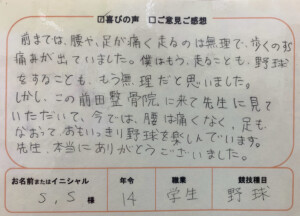 ☑喜びの声 □ご意見ご感想
前までは、腰や、足が痛く走るのは無理で、歩くのも
痛みが出ていました。僕はもう、走ることも、野球
をすることも、もう無理だと思いました。
しかし、この前田整骨院に来て先生に見て
いただいて、今では、腰は痛くなく、足も
なおって、おもいっきり野球を楽しんでいます。
先生、本当にありがとうございました。
お名前またはイニシャル 年令 職業 競技種目
S,S 様 14 学生 野球